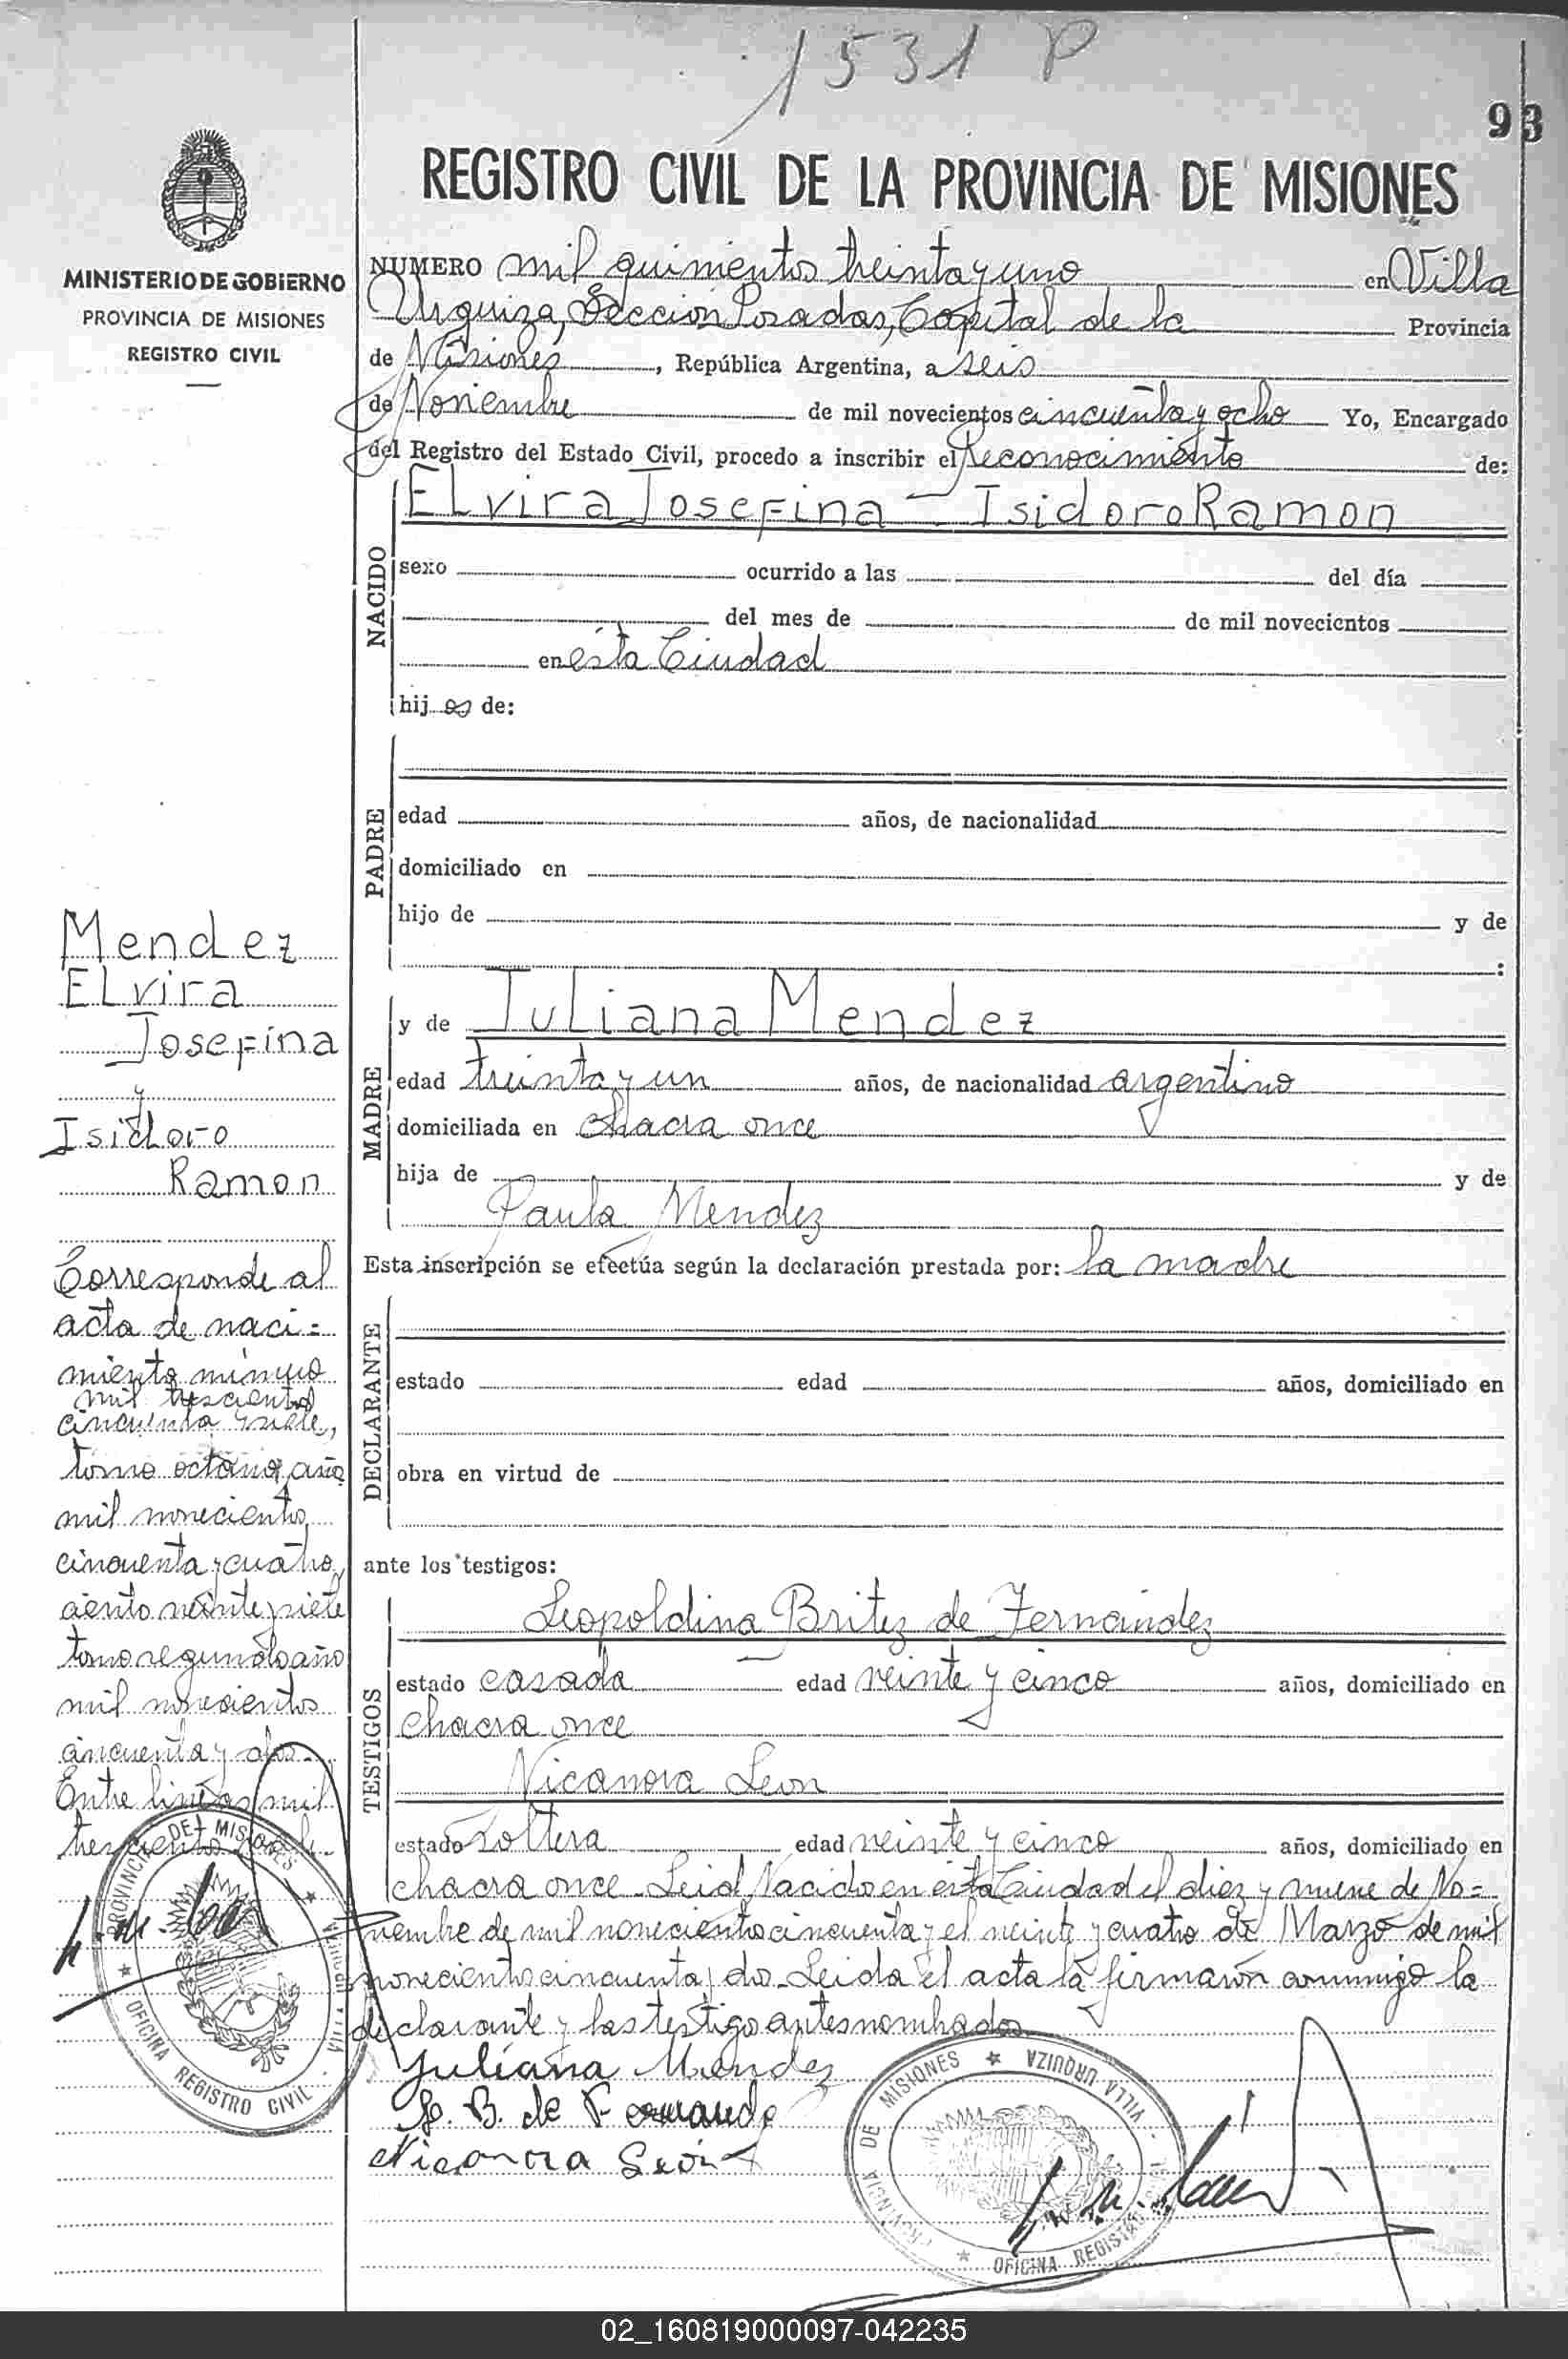 1531 P
93
MINISTERIO DE GOBIERNO
PROVINCIA DE MISIONES
REGISTRO CIVIL
REGISTRO CIVIL DE LA PROVINCIA DE MISIONES
NUMERO mil quinientos treinta y uno en Villa
Urquiza, Sección Posadas, Capital de la Provincia
de Misiones, República Argentina, a seis
de Noviembre de mil novecientos cincuenta y ocho Yo, Encargado
del Registro del Estado Civil, procedo a inscribir el Reconocimiento de:
ELvira Josefina - Isidoro Ramon
NACIDO
sexo ocurrido a las del día
del mes de de mil novecientos
en ésta Ciudad
hij os de:
PADRE
edad años, de nacionalidad
domiciliado en
hijo de y de
:
MADRE
y de Juliana Mendez
edad treinta y un años, de nacionalidad argentino
domiciliada en chacra once
hija de y de
Paula Mendez
Esta inscripción se efectúa según la declaración prestada por: la madre
DECLARANTE
estado edad años, domiciliado en
obra en virtud de
ante los testigos:
TESTIGOS
Leopoldina Britez de Fernández
estado casada edad veinte y cinco años, domiciliado en
chacra once
Nicanora Leon
estado soltera edad veinte y cinco años, domiciliado en
chacra once - Leid Nacido en esta Ciudad el diez y nueve de No=
viembre de mil novecientos cincuenta y el veinte y cuatro de Marzo de mil
novecientos cincuenta y dos. Leida el acta la firmaron conmigo la
declarante y las testigo antes nombrados
Juliana Mendez
L. B. de Fernande
Nicanora León
Mendez
ELvira
Josefina
y
Isidoro
Ramon
Corresponde al
acta de naci=
miento número
mil trescientos
cincuenta y siete,
tomo octavo, año
mil novecientos
cincuenta y cuatro,
ciento veinte y siete
tomo segundo año
mil novecientos
cincuenta y dos.
Entre lineas mil
trescientos
PROVINCIA DE MISIONES
OFICINA REGISTRO CIVIL
PROVINCIA DE MISIONES ★ VILLA URQUIZA
OFICINA REGISTRO
02_160819000097-042235